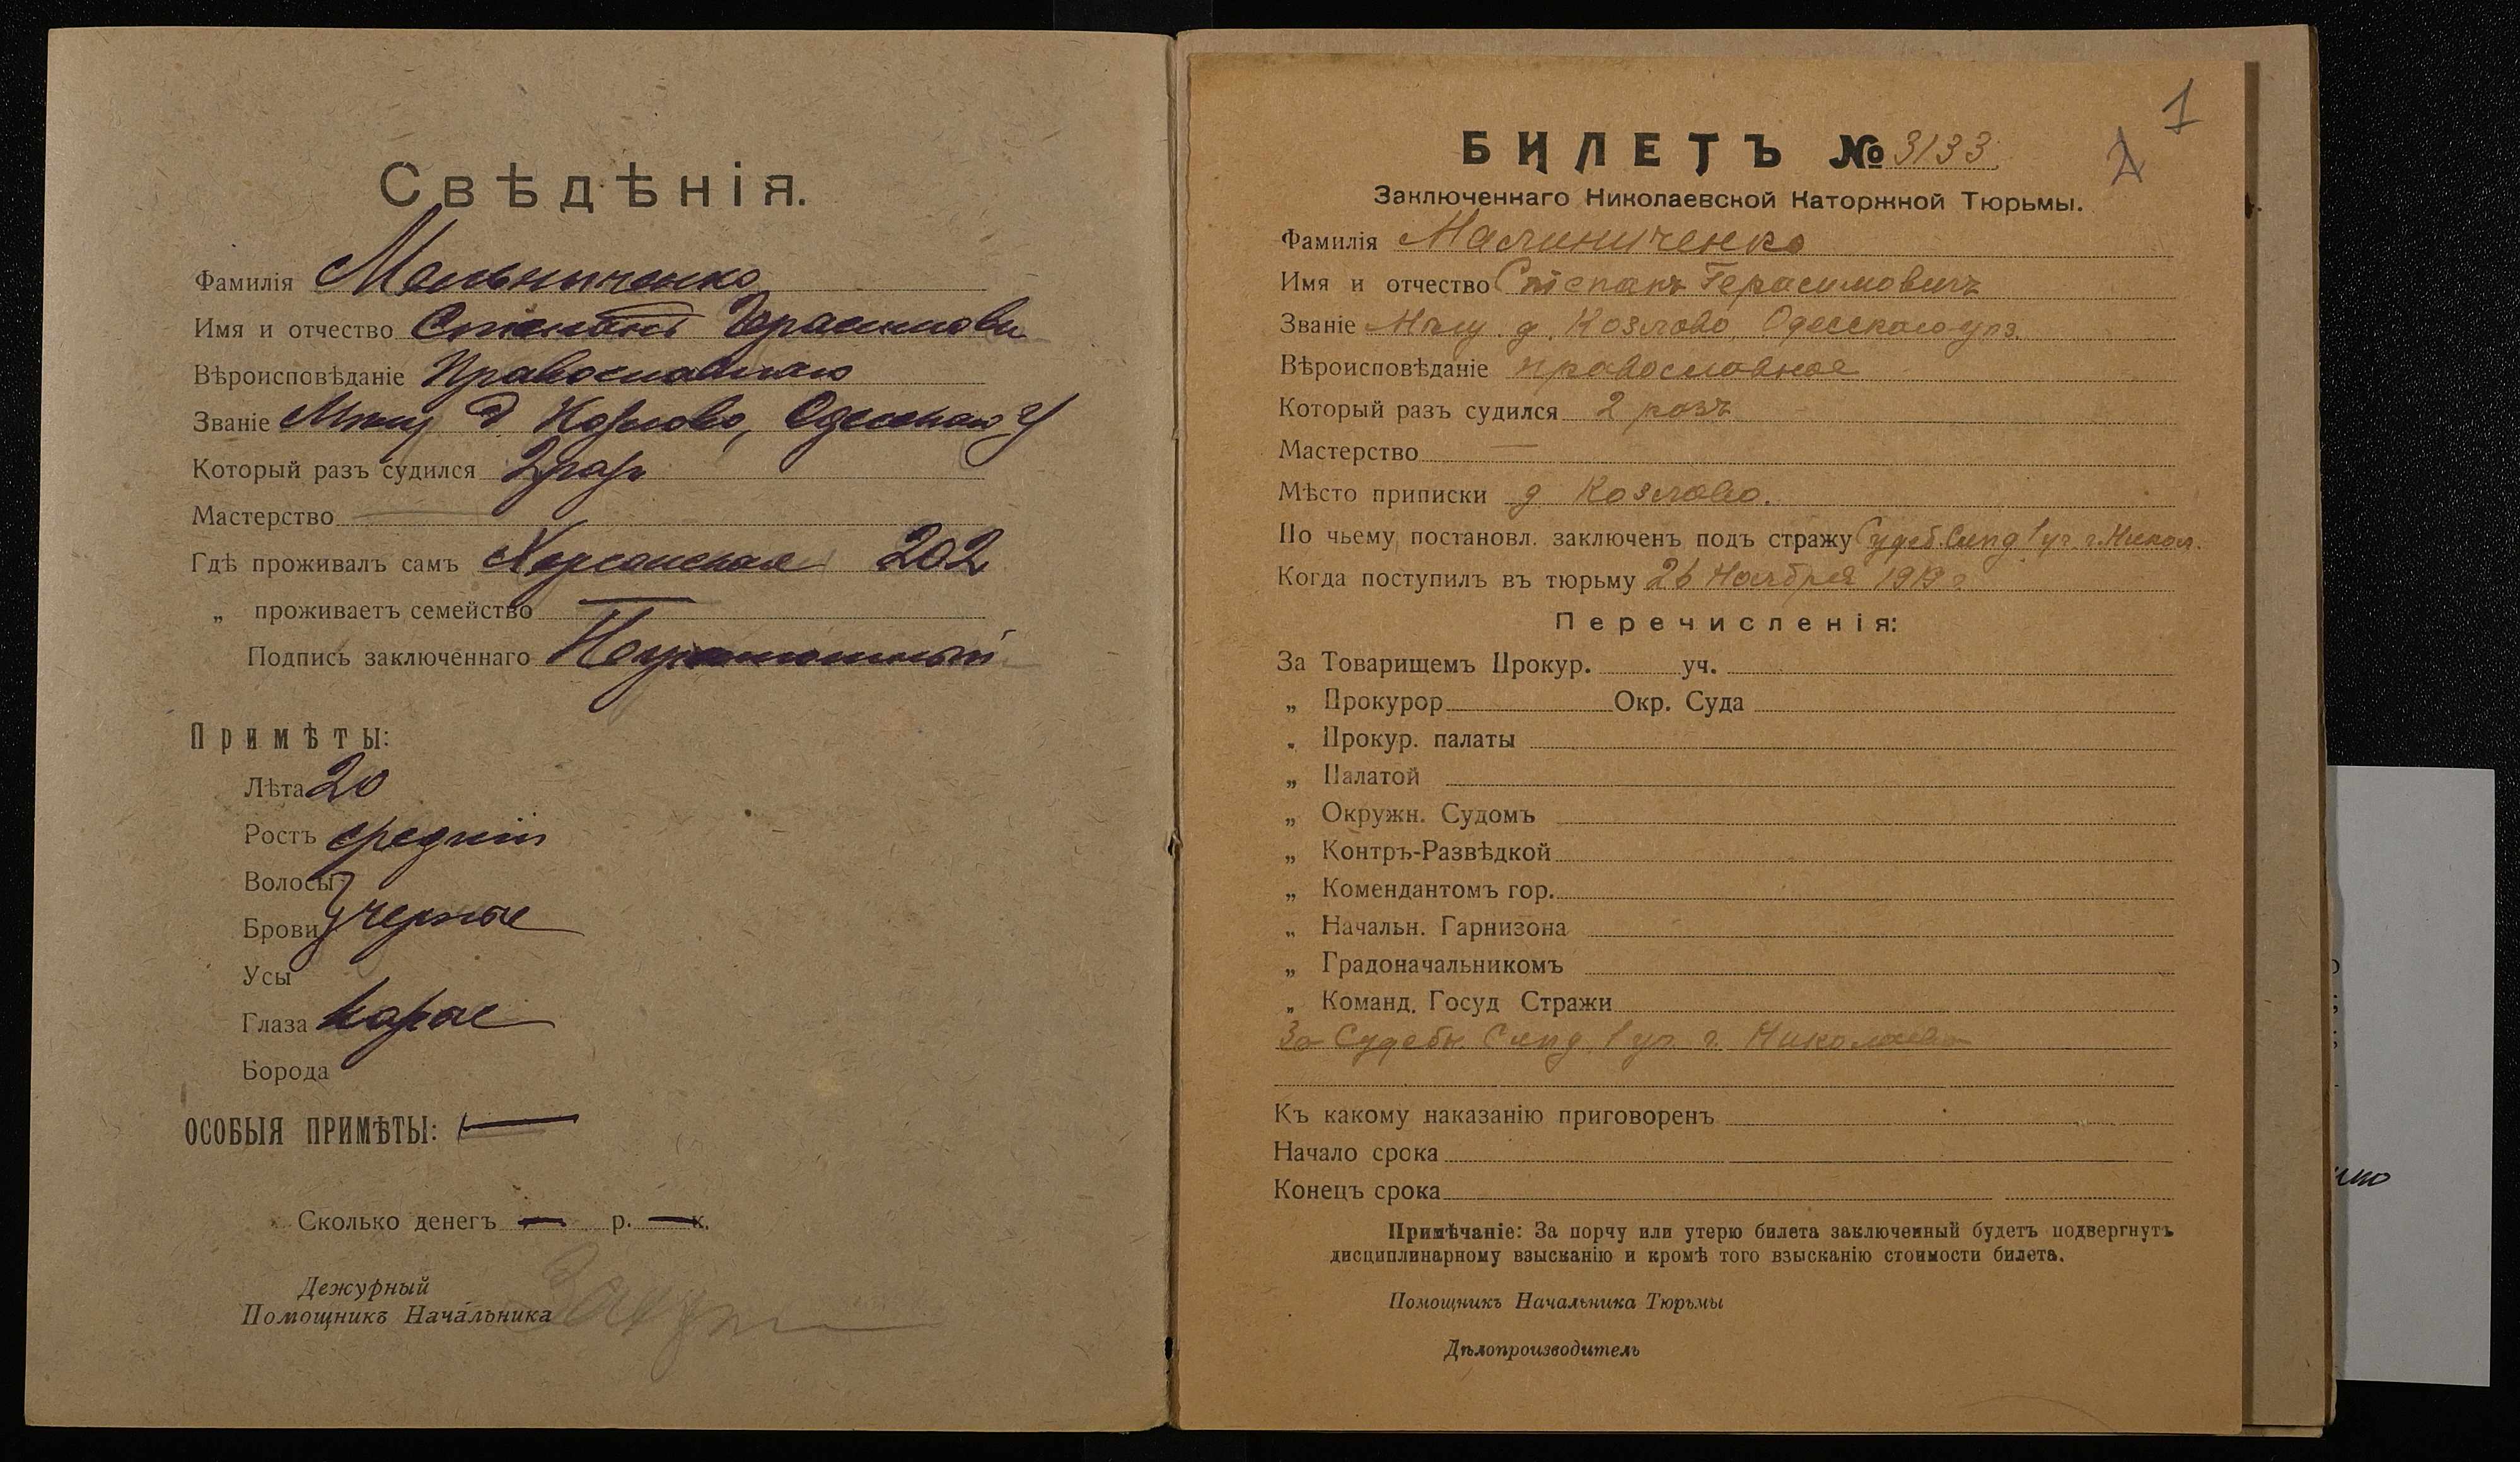 Свѣдѣнія.
Фамилія Мельниченко
Имя и отчество Степанъ Герасимови
Вѣроисповѣданіе Православнаго
Званіе Мѣщ д Козлово, Одесскаго у
Который разъ судился 2 разъ
Мастерство —
Гдѣ проживалъ самъ Херсонская 202
„ проживаетъ семейство —
Подпись заключеннаго Неграмотный
Примѣты:
Лѣта 20
Ростъ средній
Волосы
Брови черные
Усы
Глаза карые
Борода
ОСОБЫЯ ПРИМѢТЫ: —
Сколько денегъ — р. — к.
Дежурный
Помощникъ Начальника
1
2
БИЛЕТЪ № 3133
Заключеннаго Николаевской Каторжной Тюрьмы.
Фамилія Малиниченко
Имя и отчество Степанъ Герасимовичъ
Званіе Мѣщ. д. Козлово, Одесскаго уѣз.
Вѣроисповѣданіе православное
Который разъ судился 2 разъ
Мастерство —
Мѣсто приписки д Козлово.
По чьему постановл. заключенъ подъ стражу Судеб. Слѣд 1 уч. г. Никол.
Когда поступилъ въ тюрьму 26 Ноября 1919 г.
Перечисленія:
За Товарищемъ Прокур. уч.
„ Прокурор Окр. Суда
„ Прокур. палаты
„ Палатой
„ Окружн. Судомъ
„ Контръ-Развѣдкой
„ Комендантомъ гор.
„ Начальн. Гарнизона
„ Градоначальникомъ
„ Команд. Госуд Стражи
За Судебн. Слѣд. 1 уч. г. Николаева
Къ какому наказанію приговоренъ
Начало срока
Конецъ срока
Примѣчаніе: За порчу или утерю билета заключенный будетъ подвергнутъ
дисциплинарному взысканію и кромѣ того взысканію стоимости билета.
Помощникъ Начальника Тюрьмы
Дѣлопроизводитель